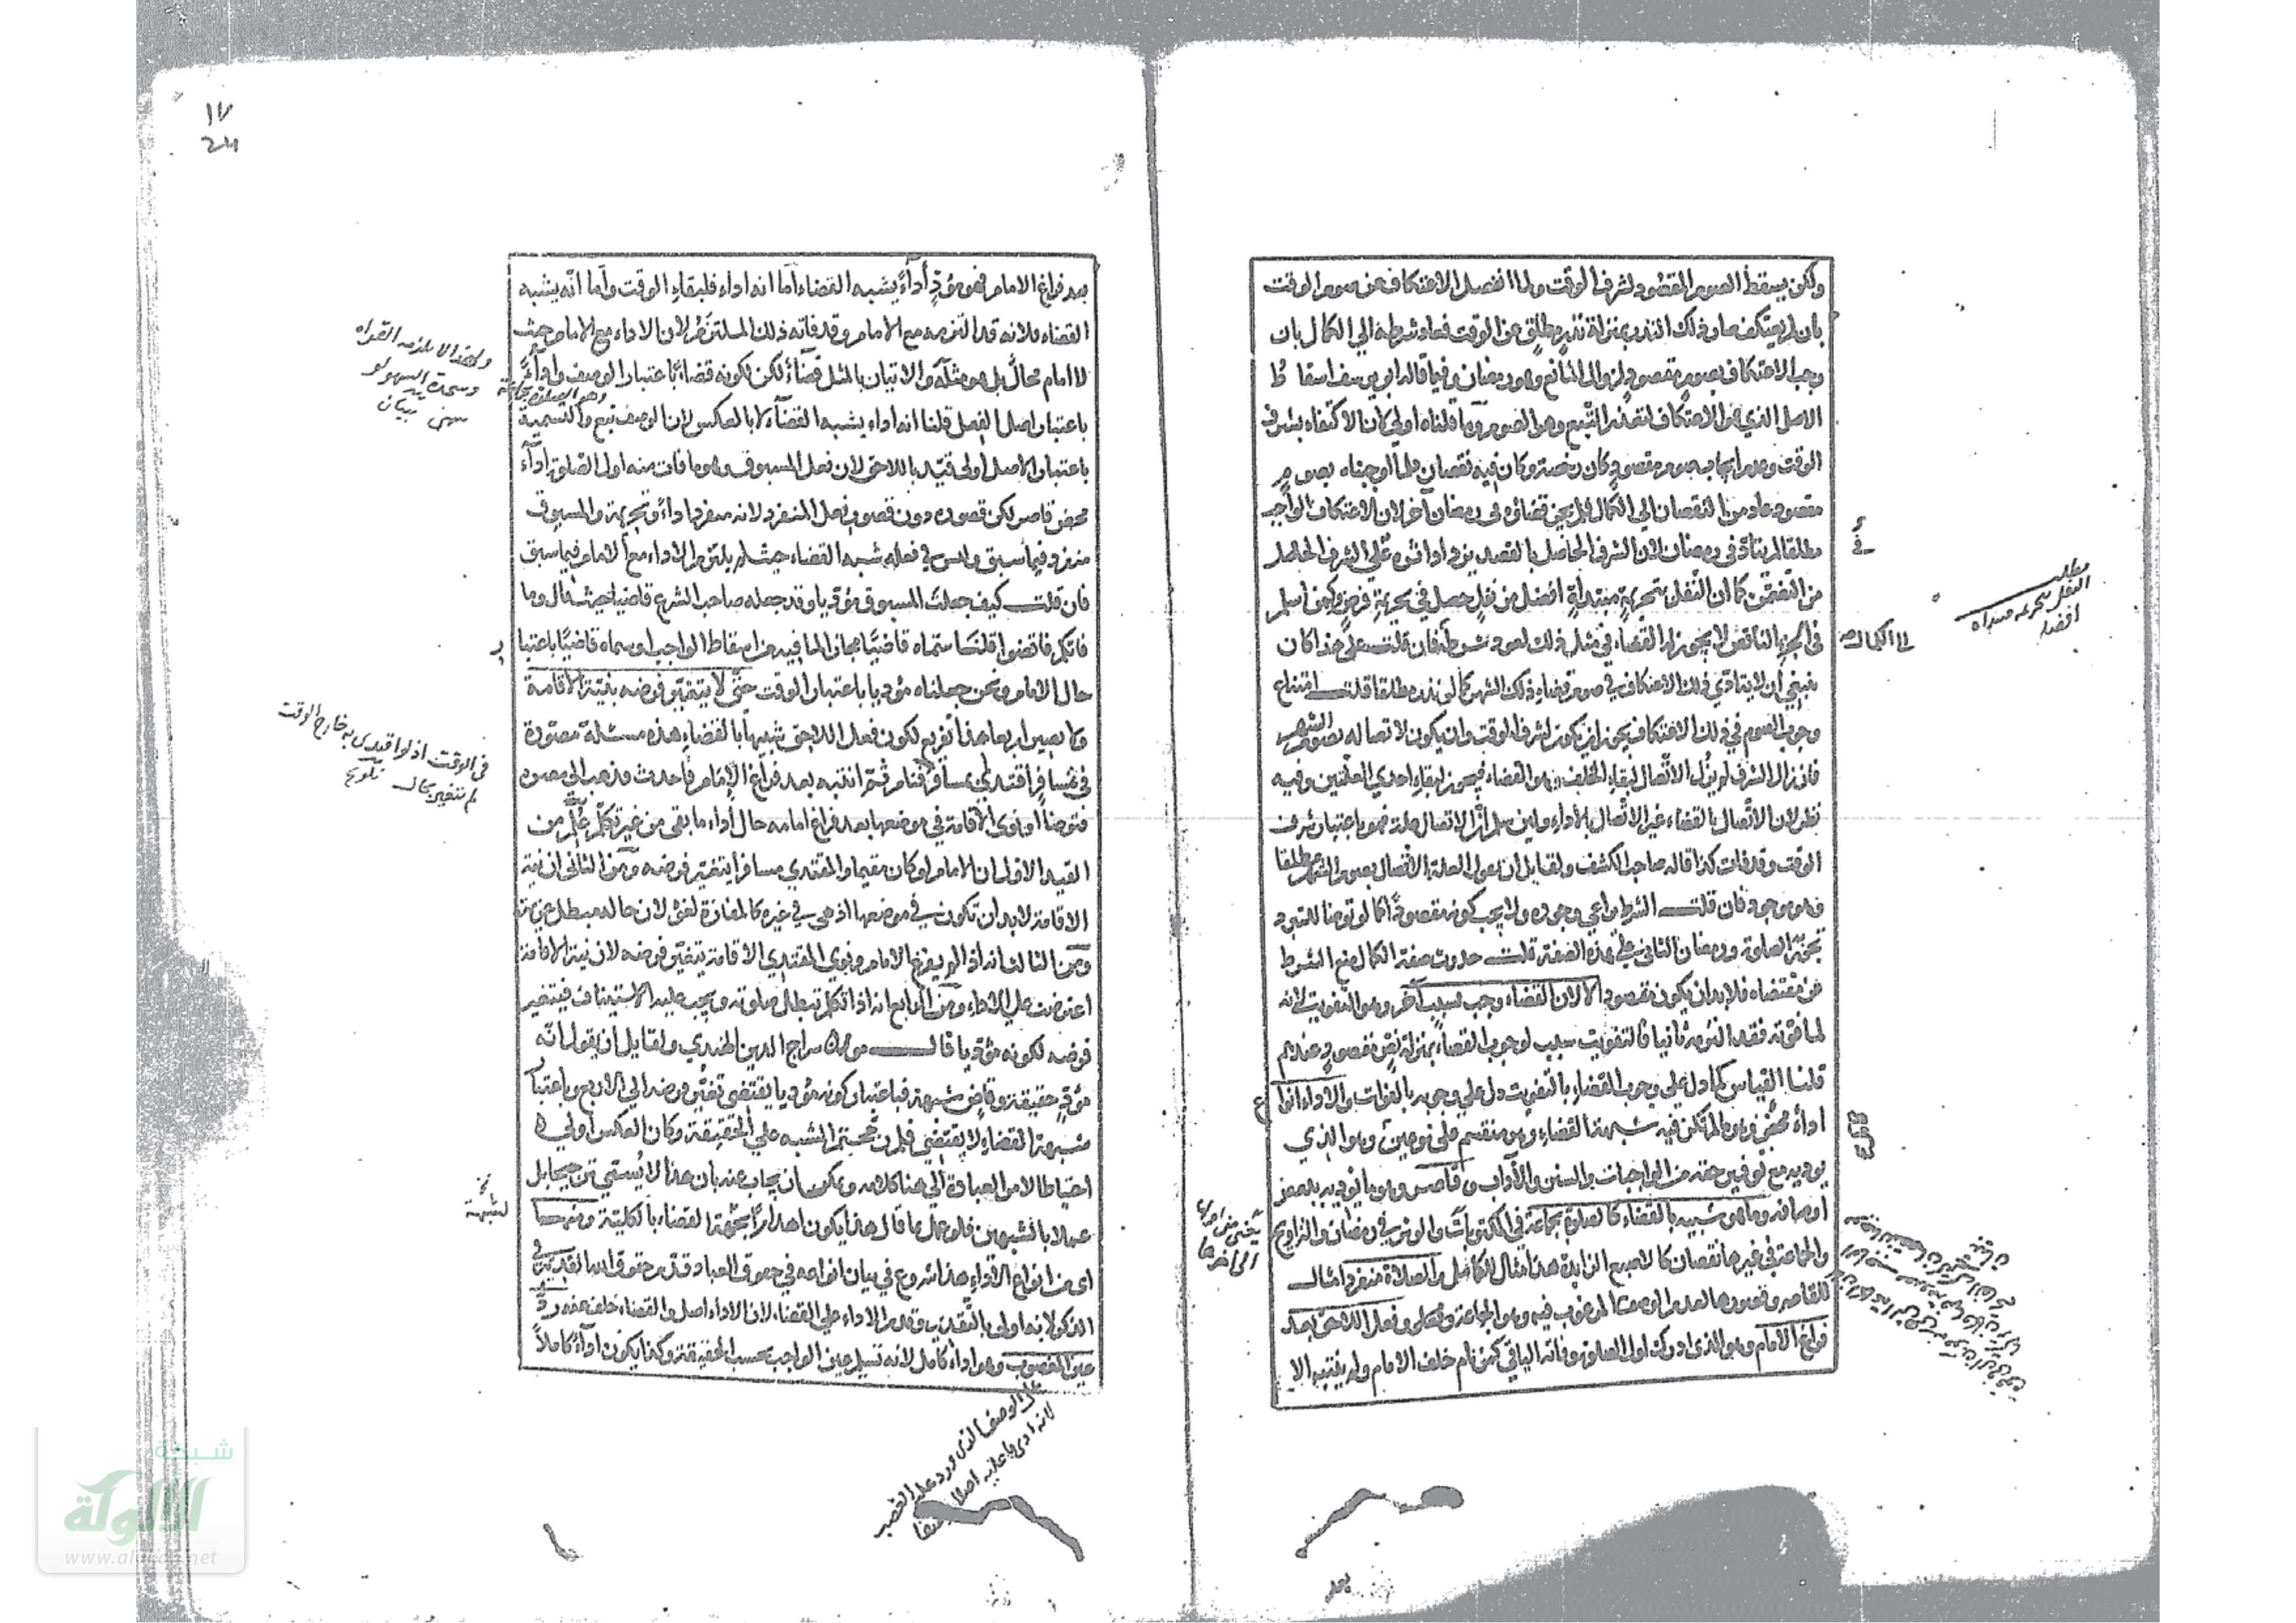 ولكن يسقط الصوم المقصود لشرف الوقت ولما انفصل الاعتكاف عن صوم الوقت
بان لم يعتكف صار ذلك النذر بمنزلة نذر مطلق عن الوقت فعاد شرطه الي الكمال بان
وجب الاعتكاف بصوم مقصود لزوال المانع وهو رمضان وفيما قاله ابو يوسف اسقاط
الاصل الذي هو الاعتكاف لتعذر التبع وهو الصوم وما قلناه اولي كان الاكتفاء بشرف
الوقت وعدم ايجابه بصوم مقصود كان رخصة وكان فيه نقصان فلما اوجبناه بصوم
مقصود عاد من النقصان الي الكمال فلم يجز قضاؤه في رمضان آخر لان الاعتكاف الواجب
مطلقا لم يتأد في رمضان لان الشرف الحاصل بالقصد يزداد اداؤه علي الشرف الحاصل
من التضمن كما ان النفل بتحريمة مبتدأة افضل من نفل حصل في تحريمة فرض ولمن اسلم
في الجزء الناقص لا يجوز له القضاء في مثل ذلك لعود شرطه فان قلت علي هذا كان
ينبغي ان لا يتأدي ذلك الاعتكاف في صوم قضاء ذلك الشهر كما لو نذره مطلقا قلت امتناع
وجوب الصوم في ذلك الاعتكاف يجوز ان يكون لشرف الوقت وان يكون لاتصاله بصوم الشهر
فان زال الشرف لم يزل الاتصال لبقاء الخلف وهو القضاء فيجوز لبقاء احدي العلتين وفيه
نظر لان الاتصال بالقضاء غير الاتصال بالاداء ولئن سلم ان الاتصال علة فهو باعتبار شرف
الوقت وقد فات كذا قاله صاحب الكشف ولقايل ان يقول العلة الاتصال بصوم الشهر مطلقا
وهو موجود فان قلت الشرط يراعي وجوده ولا يجب كونه مقصودا كما لو توضأ للتبرد
تجوز به الصلوة ورمضان الثاني علي هذه الصفة قلت حدوث صفة الكمال منع الشرط
عن مقتضاه فلا بد ان يكون مقصودا لا لان القضاء وجب بسبب آخر وهو التفويت لانه
لما فوته فقد التزمه ثانيا فالتفويت سبب لوجوب القضاء بمنزلة نص مقصود عندهم
قلنا القياس كما دل علي وجوب القضاء بالتفويت دل علي وجوبه بالفوات والاداء انواع
اداء محض وهو ما لم تكن فيه شبهة القضاء وهو منقسم علي نوعين وهو الذي
يؤديه مع توفير حقه من الواجبات والسنن والآداب وقاصر وهو ما يؤديه ببعض
اوصافه وما هو شبيه بالقضاء كالصلوة بجماعة في المكتوبات والوتر في رمضان والتراويح
والجماعة في غيرها نقصان كالاصبع الزايدة هذا مثال للكامل والصلاة منفردا مثال
للقاصر وقصورها لعدم الوصف المرغوب فيه وهو الجماعة وفعل اللاحق بعد
فراغ الامام وهو الذي ادرك اول الصلوة وفاته الباقي كمن نام خلف الامام ولم ينتبه الا
مطلب
النفل بتحريمة مبتدأة
افضل
الي الكمال صح
بعد
١٧
بعد فراغ الامام فهو مؤد أداء يشبه القضاء أما انه اداء فلبقاء الوقت وأما انه يشبه
القضاء فلانه قد التزمه مع الامام وقد فاته ذلك الملتزم لان الاداء مع الامام حيث
لا امام محال بل هو مثله والاتيان بالمثل قضاء لكن لكونه قضاء باعتبار الوصف واداء
باعتبار اصل الفعل قلنا انه اداء يشبه القضاء لا بالعكس لان الوصف تبع والتسمية
باعتبار الاصل اولي قيد باللاحق لان فعل المسبوق وهو ما فات منه اول الصلوة اداء
محض قاصر لكن قصوره دون قصور فعل المنفرد لانه منفرد اداء وتحريمة والمسبوق
منفرد فيما سبق وليس في فعله شبه القضاء حيث لم يلتزم الاداء مع الامام فيما سبق
فان قلت كيف جعلت المسبوق مؤديا وقد جعله صاحب الشرع قاضيا حيث قال وما
فاتكم فاقضوا قلنا سماه قاضيا مجازا لما فيه من اسقاط الواجب او سماه قاضيا باعتبا
حال الامام ونحن جعلناه مؤديا باعتبار الوقت حتي لا يتغير فرضه بنية الاقامة
ولا يصير اربعا هذا تفريع لكون فعل اللاحق شبيها بالقضاء هذه مسئلة مصورة
في مسافر اقتدي بمسافر فنام ثم انتبه بعد فراغ الامام فاحدث فذهب الي مصره
فتوضأ او نوي الاقامة في موضعها بعد فراغ امامه حال اداء ما بقي من غير تكلم علم من
القيد الاول ان الامام لو كان مقيما والمقتدي مسافرا يتغير فرضه ومن الثاني ان نية
الاقامة لا بد ان تكون في موضعها اذ هي في غيره كالمفازة لغو لان حاله مبطل عزيمته
ومن الثالث انه اذا لم يفرغ الامام ونوي المقتدي الاقامة يتغير فرضه لان نية الاقامة
اعترضت علي الاداء ومن الرابع انه اذا تكلم تبطل صلوته ويجب عليه الاستيناف فيتغير
فرضه لكونه مؤديا قال مولانا سراج الدين الهندي ولقايل ان يقول انه
مؤد حقيقة وقاض شبهة فباعتبار كونه مؤديا يقتضي تغير فرضه الي الاربع وباعتبار
شبهة القضاء لا يقتضي فلم رجحتم الشبه علي الحقيقة وكان العكس اولي
احتياطا لامر العبادة الي هنا كلامه ويمكن ان يجاب عنه بان هذا لا يسمي ترجيحا بل
عملا بالشبهين فلو عمل بما قال هذا يكون اهدارا لجهة القضاء بالكلية ومنها
اي من انواع الاداء هذا شروع في بيان انواعه في حقوق العباد قدم حقوق الله تعالي في
الذكر لانه اولي بالتقديم وقدم الاداء علي القضاء لان الاداء اصل والقضاء خلف عنه رد
عين المغصوب وهو اداء كامل لانه تسليم عين الواجب بحسب الحقيقة وكذا يكون اداء كاملا
وسجدة السهو
في الوقت اذ لو اقتدي به خارج الوقت
لم يتغير بحال تلويح
علي الوصف الذي ورد عليه الغصب
شبكة
الألوكة
www.alukah.net